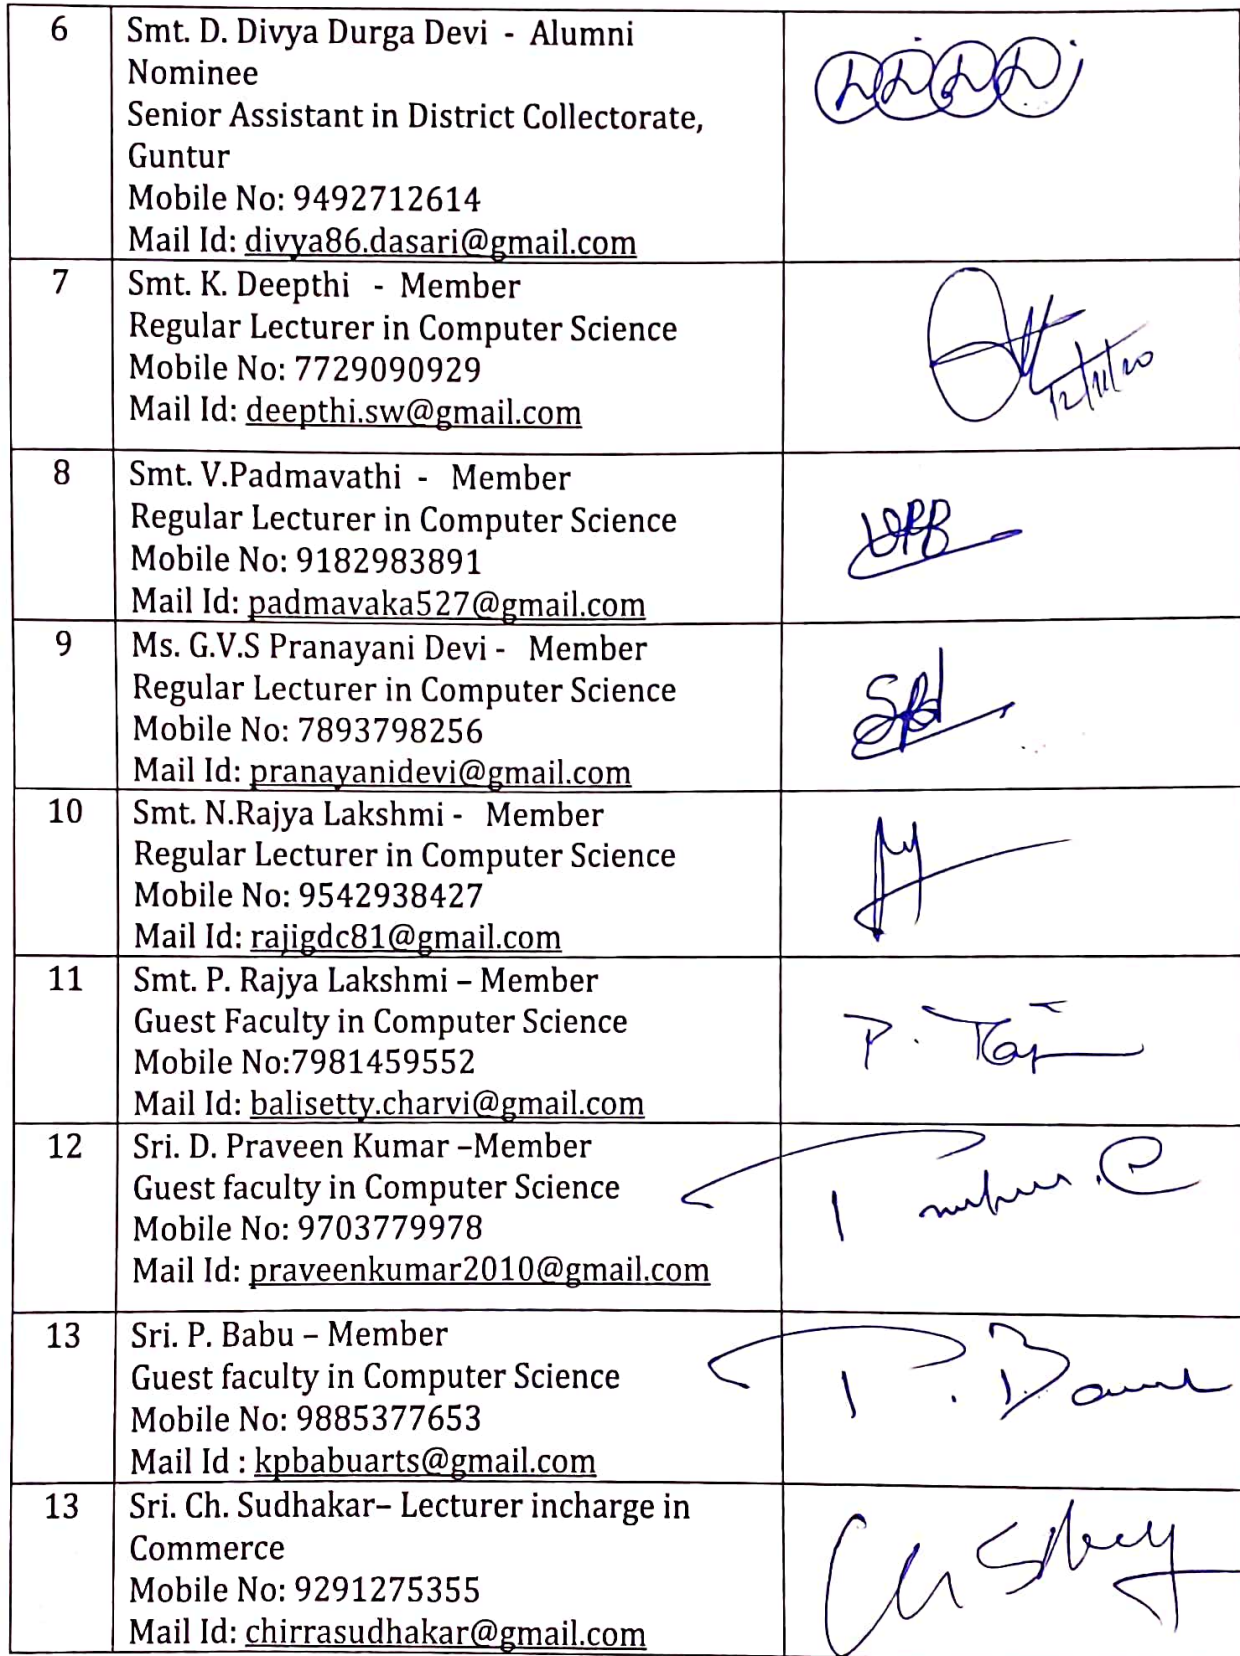 6
Smt. D. Divya Durga Devi - Alumni
Nominee
Senior Assistant in District Collectorate,
Guntur
Mobile No: 9492712614
Mail Id: divya86.dasari@gmail.com
7
Smt. K. Deepthi - Member
Regular Lecturer in Computer Science
Mobile No: 7729090929
Mail Id: deepthi.sw@gmail.com
12/11/20
8
Smt. V.Padmavathi - Member
Regular Lecturer in Computer Science
Mobile No: 9182983891
Mail Id: padmavaka527@gmail.com
9
Ms. G.V.S Pranayani Devi - Member
Regular Lecturer in Computer Science
Mobile No: 7893798256
Mail Id: pranayanidevi@gmail.com
10
Smt. N.Rajya Lakshmi - Member
Regular Lecturer in Computer Science
Mobile No: 9542938427
Mail Id: rajigdc81@gmail.com
11
Smt. P. Rajya Lakshmi – Member
Guest Faculty in Computer Science
Mobile No:7981459552
Mail Id: balisetty.charvi@gmail.com
P. Raji
12
Sri. D. Praveen Kumar –Member
Guest faculty in Computer Science
Mobile No: 9703779978
Mail Id: praveenkumar2010@gmail.com
13
Sri. P. Babu – Member
Guest faculty in Computer Science
Mobile No: 9885377653
Mail Id : kpbabuarts@gmail.com
13
Sri. Ch. Sudhakar– Lecturer incharge in
Commerce
Mobile No: 9291275355
Mail Id: chirrasudhakar@gmail.com